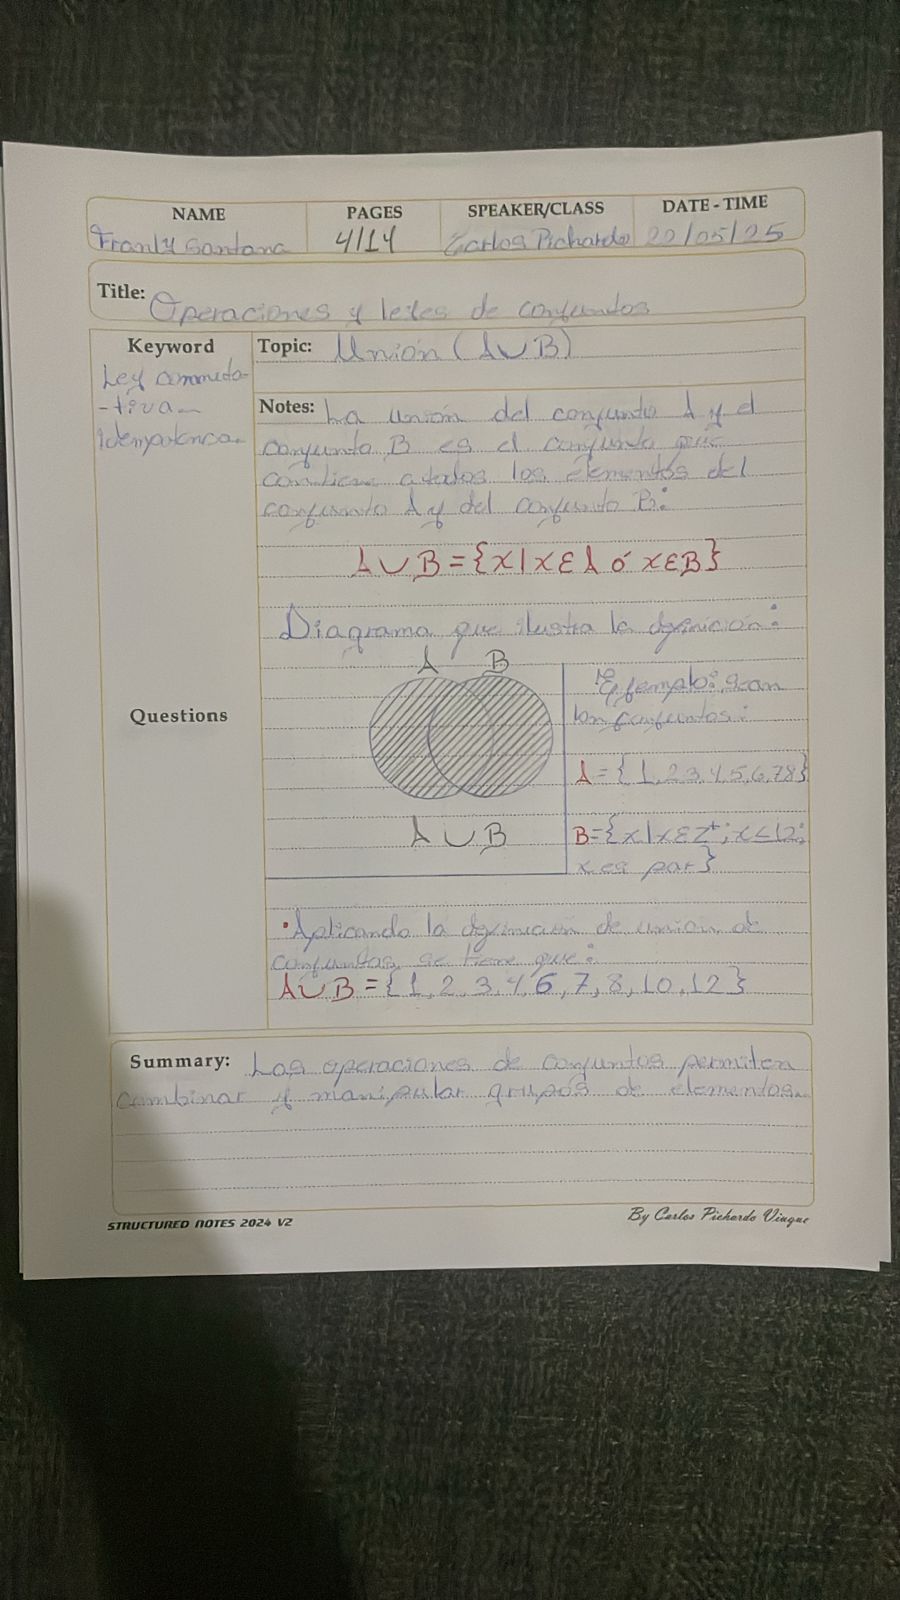 NAME PAGES SPEAKER/CLASS DATE-TIME
Franly Santana 4/14 Carlos Pichardo 22/05/25
Title: Operaciones y leyes de conjuntos
Keyword
Ley conmuta-
-tiva
Idempotencia.
Topic: Unión (A∪B)
Notes: La unión del conjunto A y el
conjunto B es el conjunto que
contiene a todos los elementos del
conjunto A y del conjunto B:
A∪B={x|x∈A ó x∈B}
Diagrama que ilustra la definición:
A B
A∪B
Ejemplo: Sean
los conjuntos:
A={1,2,3,4,5,6,7,8}
B={x|x∈Z⁺; x≤12;
x es par}
Questions
•Aplicando la definición de unión de
conjuntos se tiene que:
A∪B={1,2,3,4,6,7,8,10,12}
Summary: Las operaciones de conjuntos permiten
combinar y manipular grupos de elementos.
STRUCTURED NOTES 2024 V2
By Carlos Pichardo Viuque